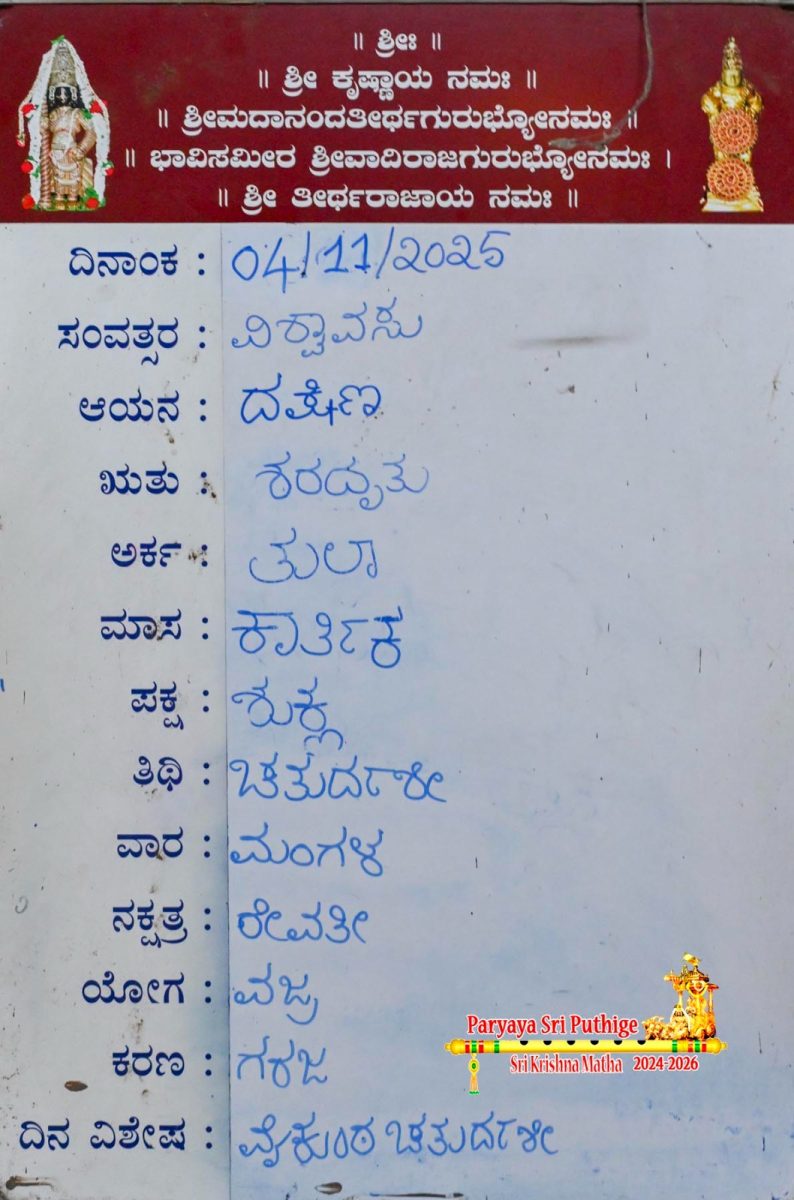 ॥ ಶ್ರೀಃ ॥
॥ ಶ್ರೀ ಕೃಷ್ಣಾಯ ನಮಃ ॥
॥ ಶ್ರೀಮದಾನಂದತೀರ್ಥಗುರುಭ್ಯೋನಮಃ ॥
॥ ಭಾವಿಸಮೀರ ಶ್ರೀವಾದಿರಾಜಗುರುಭ್ಯೋನಮಃ ।
॥ ಶ್ರೀ ತೀರ್ಥರಾಜಾಯ ನಮಃ ॥
ದಿನಾಂಕ : 04/11/2025
ಸಂವತ್ಸರ : ವಿಶ್ವಾವಸು
ಆಯನ : ದಕ್ಷಿಣ
ಋತು : ಶರದೃತು
ಅರ್ಕ : ತುಲಾ
ಮಾಸ : ಕಾರ್ತಿಕ
ಪಕ್ಷ : ಶುಕ್ಲ
ತಿಥಿ : ಚತುರ್ದಶೀ
ವಾರ : ಮಂಗಳ
ನಕ್ಷತ್ರ : ರೇವತೀ
ಯೋಗ : ವಜ್ರ
ಕರಣ : ಗರಜ
ದಿನ ವಿಶೇಷ : ವೈಕುಂಠ ಚತುರ್ದಶೀ
Paryaya Sri Puthige
Sri Krishna Matha 2024-2026